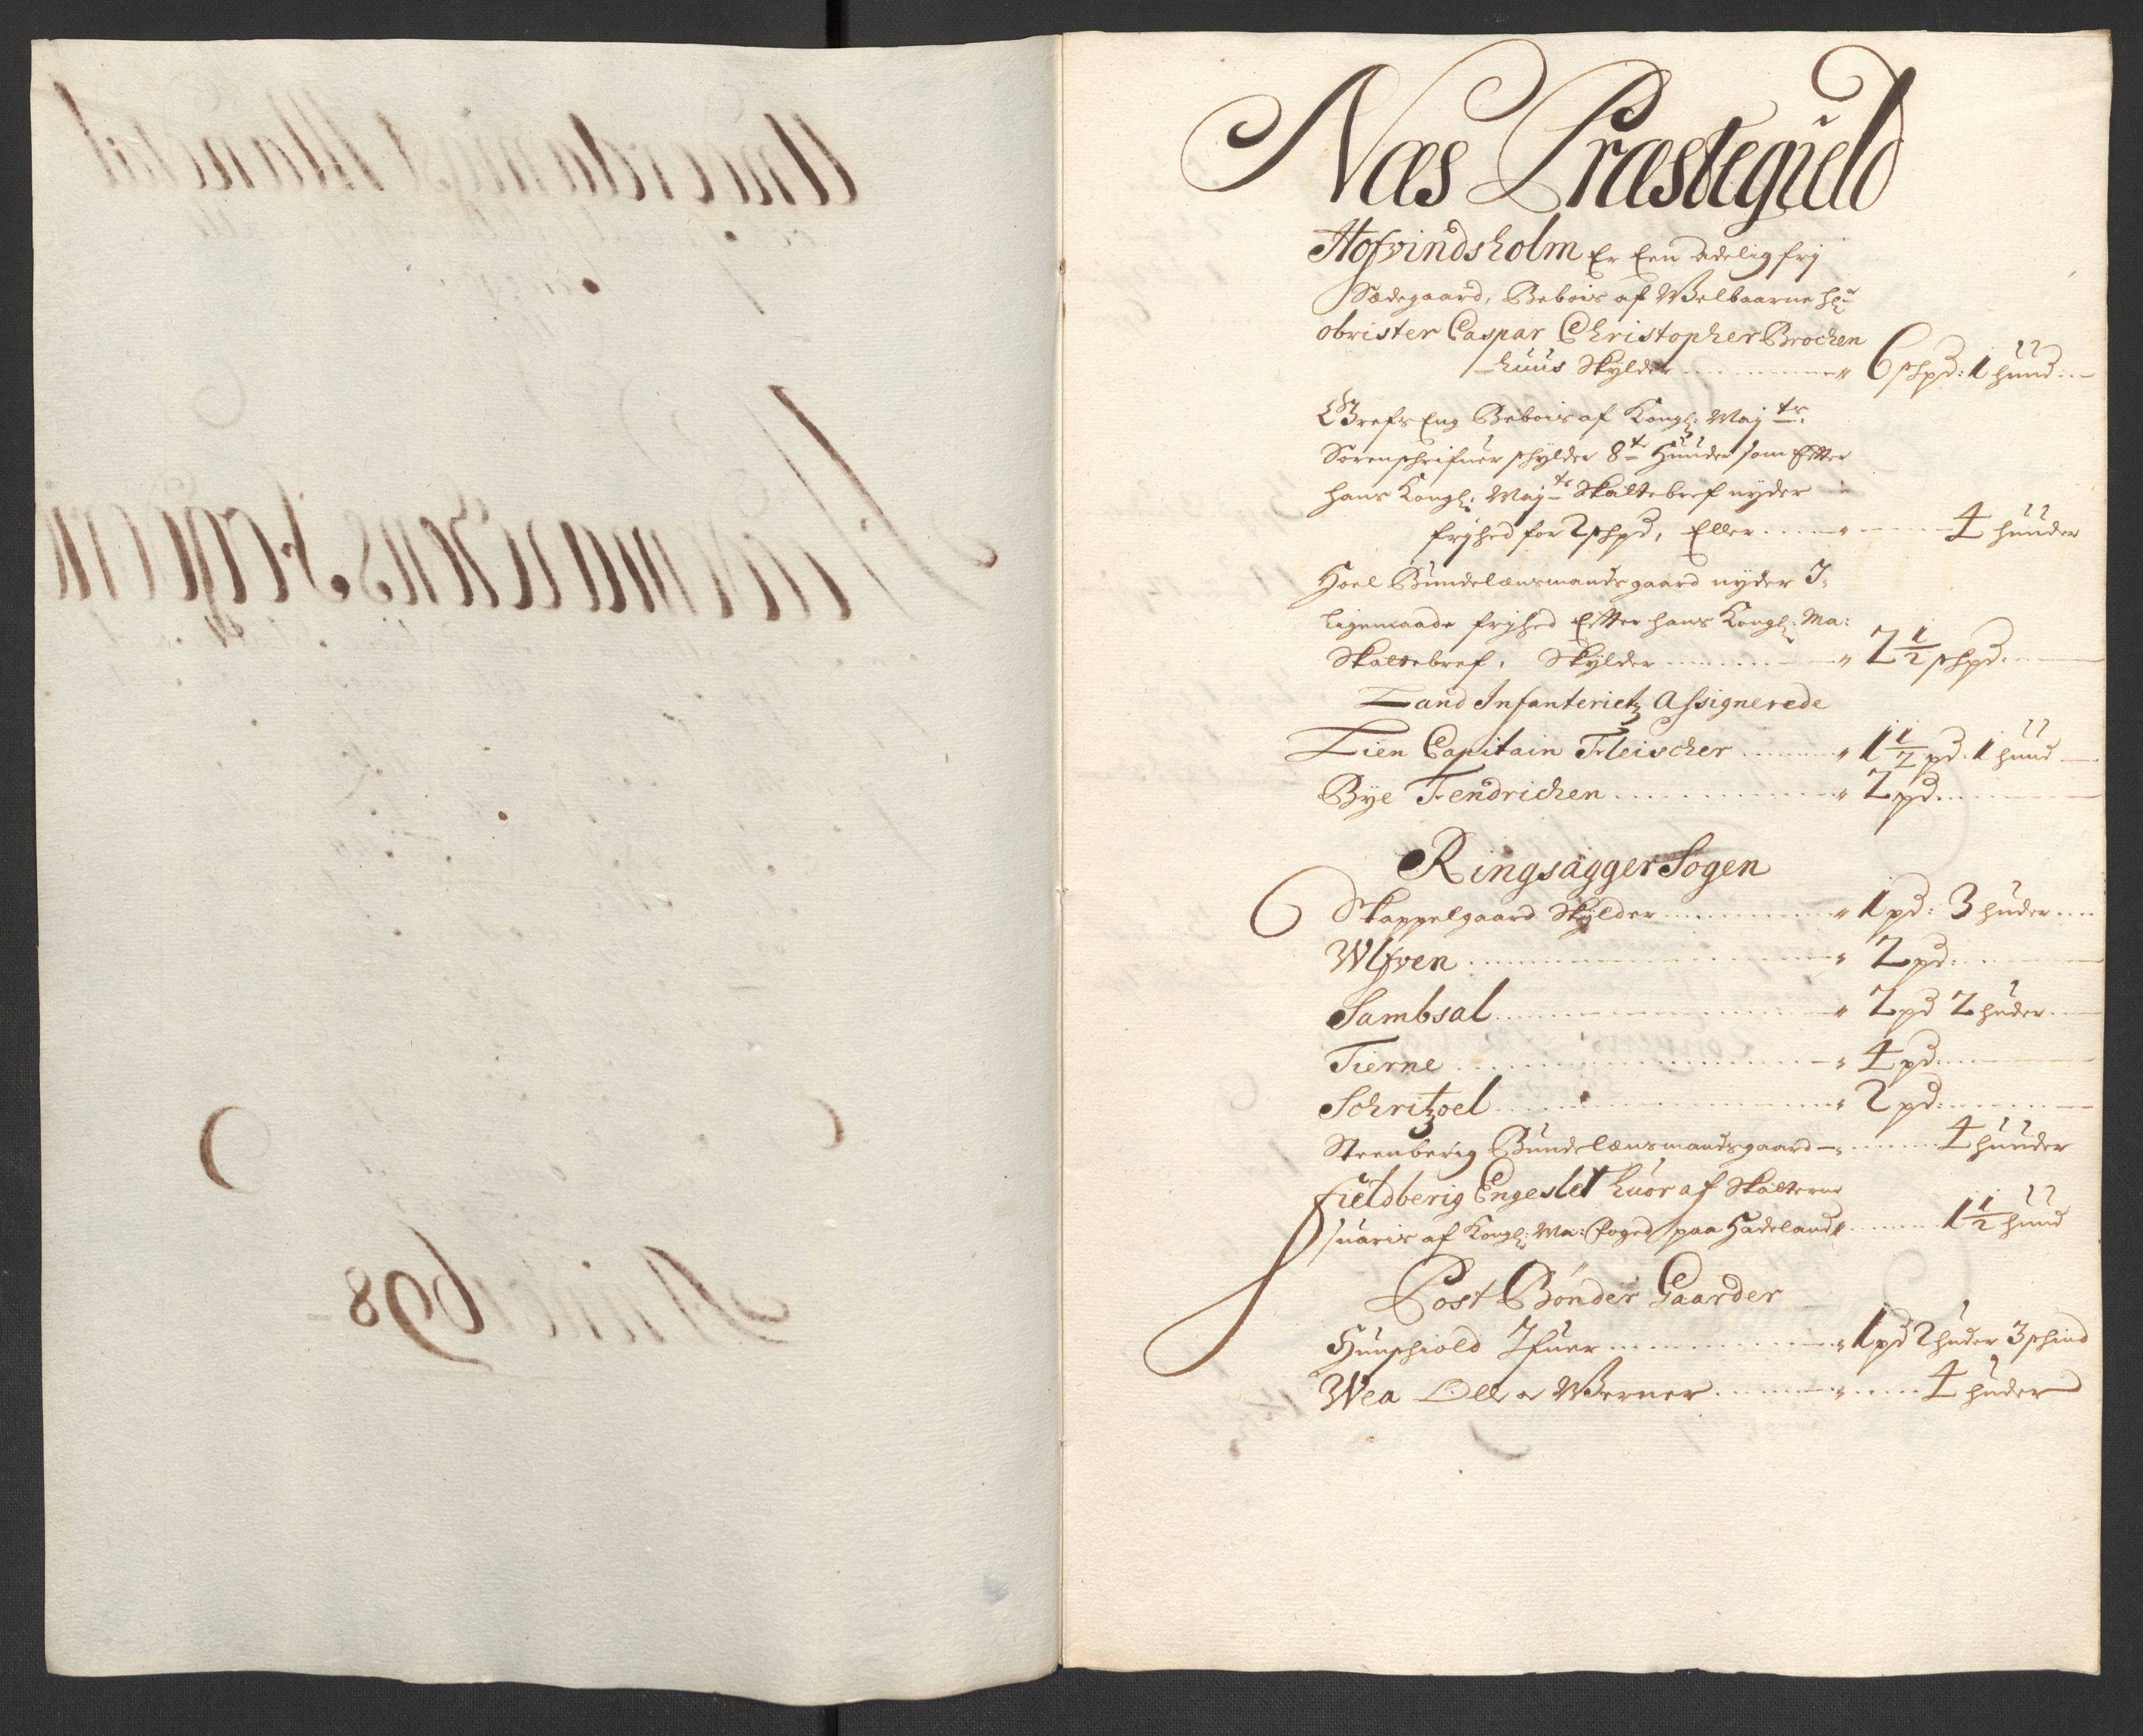 Næs Præstegield
Hofvindsholm Er Een Adelig frj
Sædegaard, Bebois af Welbaarne Hr
obrister Caspar Christopher Brochen
-huus Skylder 6 schpd: 1 hund
Grefs Eng Bebois af Kongl: Maj tz
Sorenschrifuer schylder 8te Hunder som Effter
hans Kongl: Maj tz Skattebref nyder
frjhed for 2 schpd, Eller 4 hunder
Hoel Bundelænsmandsgaard nyder J-
ligemaade frjhed Effter hans Kongl: Ma:
Skattebref, Skylder 2 1/2 schpd
Land Infanterietz Assignerede
Lien Capitain Fleischer 1 1/2 pd. 1 hund
Bye Fendrichen 2 pd
Ringsagger Sogen
Skappelgaard Skylder 1 pd: 3 huder
Wlfven 2 pd
Sambsal 2 pd 2 huder
Tierne 4 pd
Schritzoel 2 pd
Steenberig Bundelænsmandsgaard 4 hunder
Fieldberig Engeslet huor af Skatterne
suaris af Kongl: Ma: foged paa Hadeland 1 1/2 hund
Post Bønder Gaarder
Hunschiold Ifuer 1 pd 2 huder 3 schind
Wea Werner 4 huder